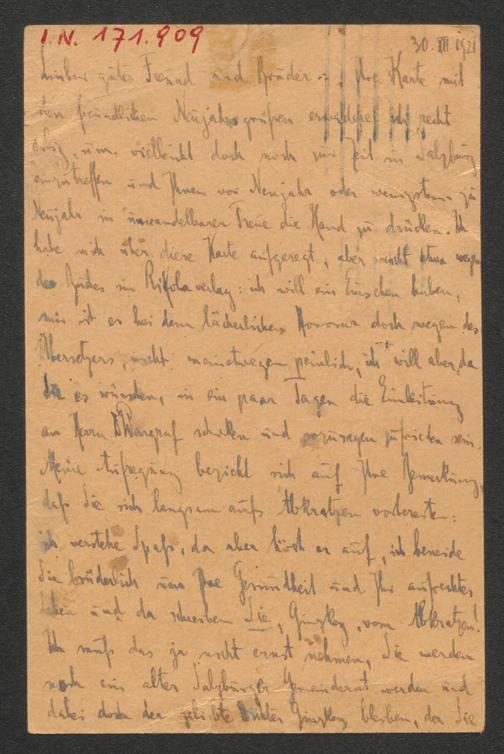 I.N. 171.909
30. XII 1921
Lieber guter Freund und Bruder, Ihre Karte mit
den freundlichen Neujahrsgrüßen erwidere ich recht
eilig, um vielleicht doch noch zur Zeit in Salzburg
einzutreffen und Ihnen vor Neujahr oder wenigstens zu
Neujahr in unwandelbarer Treue die Hand zu drücken. Ich
habe mich über diese Karte aufgeregt, aber nicht etwa wegen
des Buches im Rikola verlag: ich will ein Einsehen haben,
mir ist es bei dem lächerlichen Honorar doch wegen des
Übersetzers, nicht meinetwegen peinlich, ich will aber, da
Sie es wünschen, in ein paar Tagen die Einleitung
an Herrn schicken und zufrieden sein.
Meine Aufregung bezieht sich auf Ihre Bemerkung,
daß Sie sich langsam aufs Abkratzen vorbereiten:
ich verstehe Spaß, da aber hört er auf, ich beneide
Sie brüderlich um Ihre Gesundheit und Ihr aufrechtes
Leben und da schreiben Sie, Ginzkey, vom Abkratzen!
Ich muß das ja nicht ernst nehmen, Sie werden
noch ein alter Salzburger Gemeinderat werden und
dabei doch der geliebte Dichter Ginzkey bleiben, der Sie